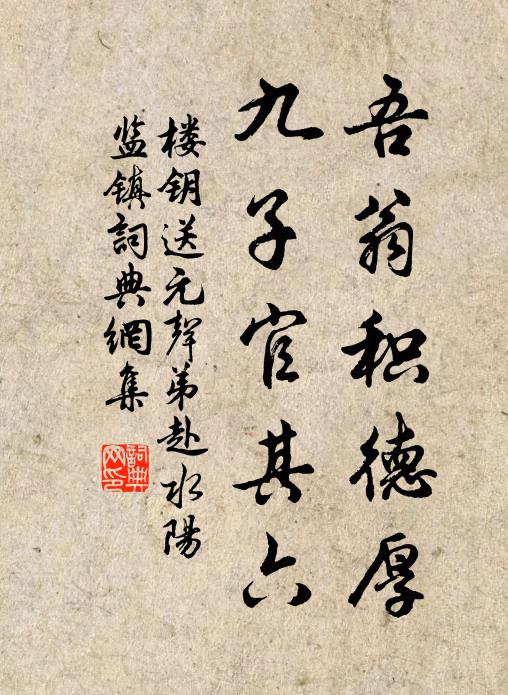 吾翁积德厚
九子官其六
楼钥送元聲弟赴水陽
监镇詞典網集
詞典
网印